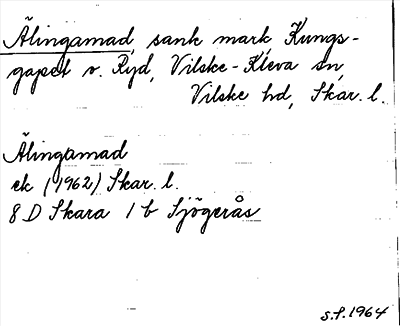 Älingamad, sank mark, Kungs-
gapet v. Ryd, Vilske-Kleva sn,
Vilske hd, Skar. l.
Älingamad
ek (1962) Skar. l.
8 D Skara 1 b Sjögerås
S.F. 1964